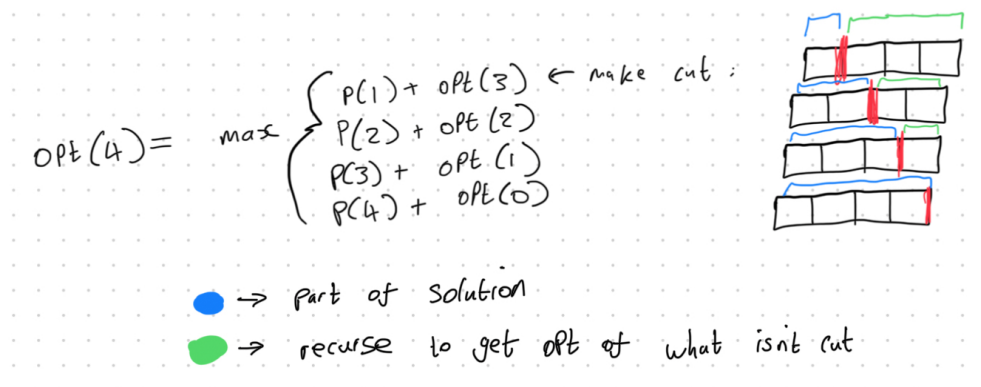 opt(4) = max
P(1) + opt(3) ← make cut :
P(2) + opt(2)
P(3) + opt(1)
P(4) + opt(0)
→ part of solution
→ recurse to get opt of what isn't cut